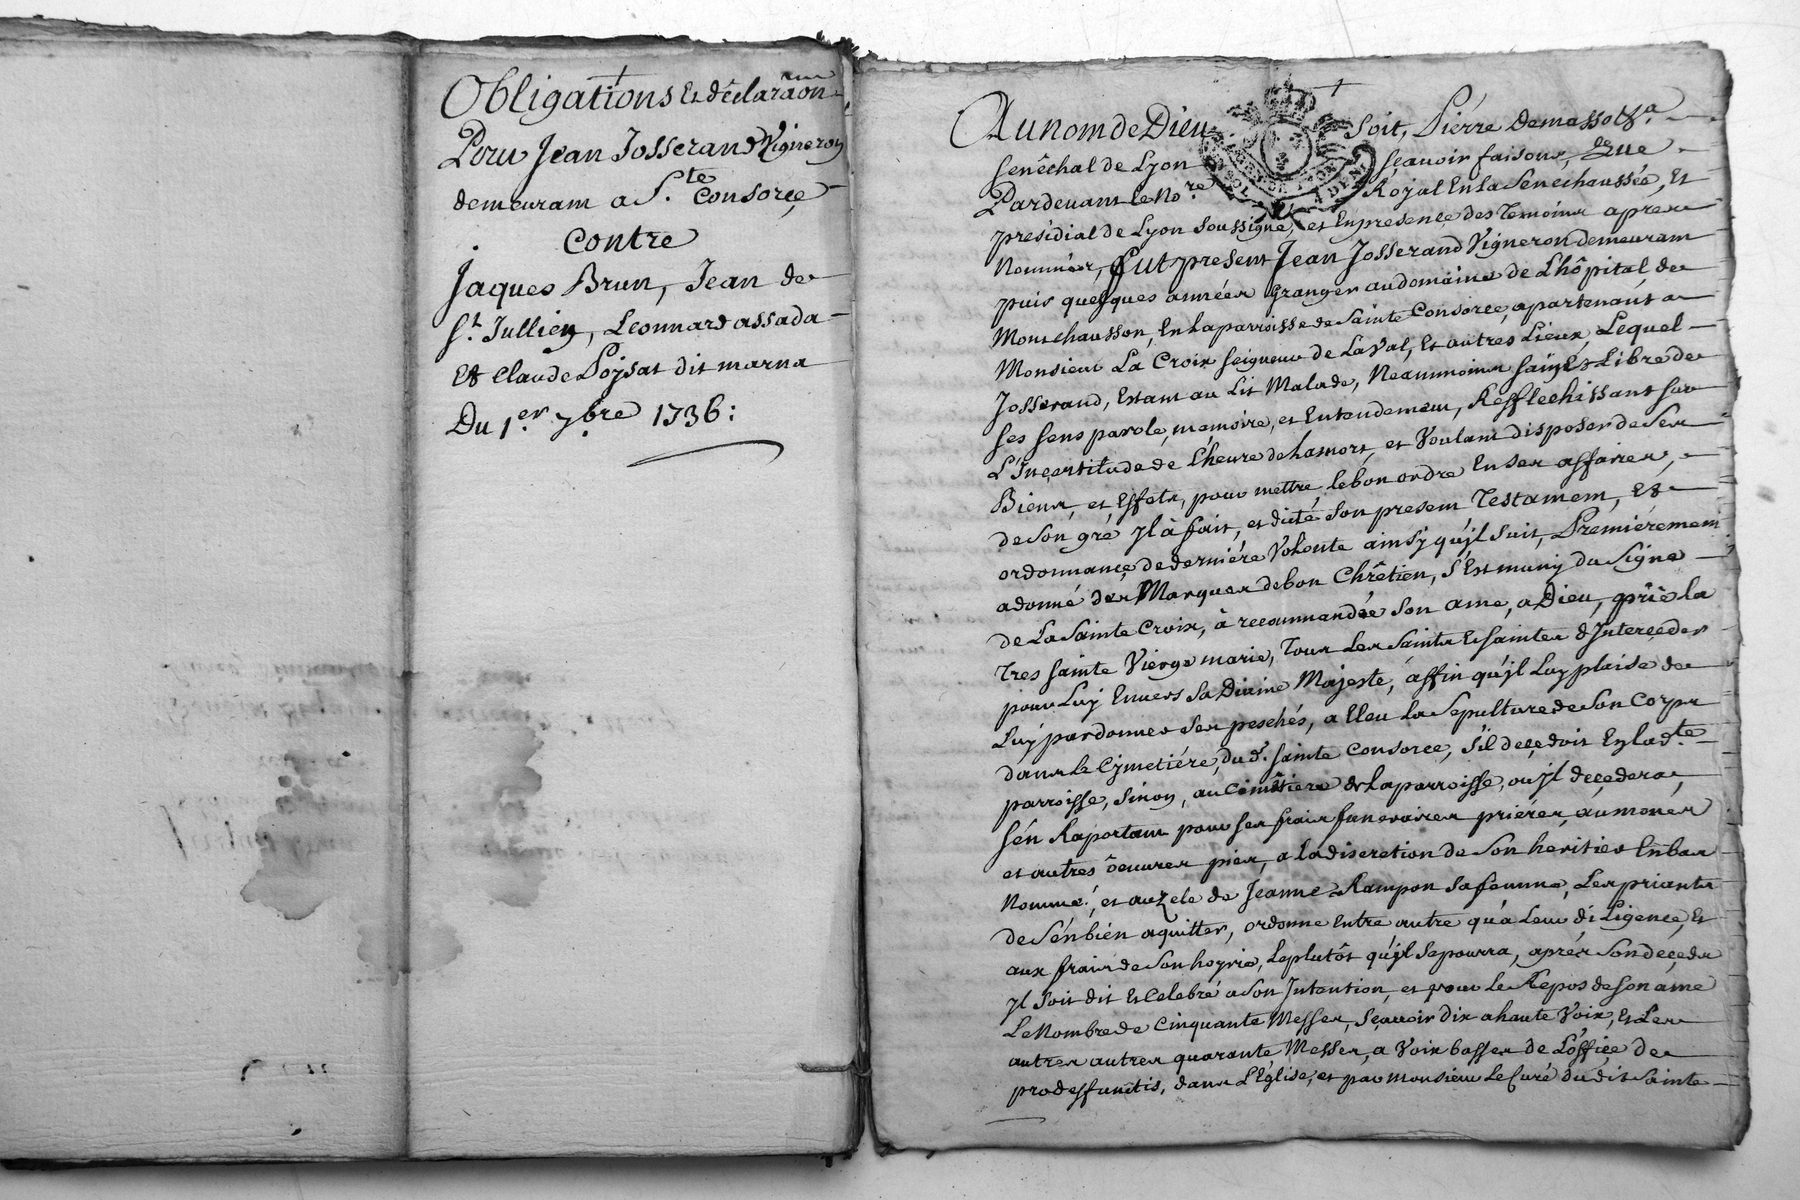 Obligations Et déclaraõn
Pour Jean Josserand Vigneron
demeurant a S.te Consorçe
Contre
Jaques Brun, Jean de
S.t Jullien, Leonnard assada
Et Claude Poysat dit marna
Du 1.er 7bre 1736:
Au nom de Dieu soit, Piérre demassol
senêchal de Lyon sçavoir faisons, que
Pardevant le No.re Royal En la Senéchaussée, Et
presidial de Lyon soussigné, et En presençe des Temoins aprés
Nommés, fut present Jean Josserand Vigneron demeurant
puis quelques années Granger au domaine de L'hôpital de
Montchausson, En La parroisse de Sainte Consorce, apartenant a
Monsieur La Croix seigneur de Laval, Et autres Lieux, Lequel
Josserand, Estant au Lit Malade, Neammoins sain Et Libre de
ses sens parole, memoire, et Entendement, Refflechissant sur
L'Inçertitude de L'heure de La mort, et Voulant disposer de Ses
Biens, et Effets, pour mettre le bon ordre En ses affaires,
de son gré Jl à fait, et dicté son present Testament, Et
ordonnançe de derniére Volonté ainsy qu'jl suit, Premiérement
a donné des Marques de bon Chrêtien, s'Est muny du Signe
de La Sainte Croix, à recommandée son ame, a Dieu, prié la
Tres sainte Vierge marie, Tous Les Saints Et saintes d'Interçeder
pour Luy Envers Sa Divine Majesté, affin qu'jl Luy plaise de
Luy pardonner ses peschés, a Eleu La Sepulture de Son Corps
dans Le Cymetiére, du d. Sainte Consorce, s'il deçedoit En lad.te
parroisse, sinon, au Cimêtiere de La parroisse, ou jl deçedera,
s'én Raportant pour ses frais funeraires priéres, aumones
et autres ôeuvres pies, a la discretion de Son heritier En bas
Nommé, et au Zele de Jeanne Rampon sa femme, Les priants
de s'én bién aquitter, ordonne Entre autre qu'a Leur diLigençe, Et
aux frais de Son hoyrie, Le plutôt qu'jl Se pourra, aprés Son deçeds
Jl soit dit Et Celebré a Son Intention, et pour Le Repos de son ame
Le Nombre de Cinquante Messes, sçavoir dix a haute Voix, Et Les
autres autres quarante Messes, a Voix basses de L'offiçe de
pro deffunctis, dans L'Eglise, et par Monsieur Le Curé du dit Sainte